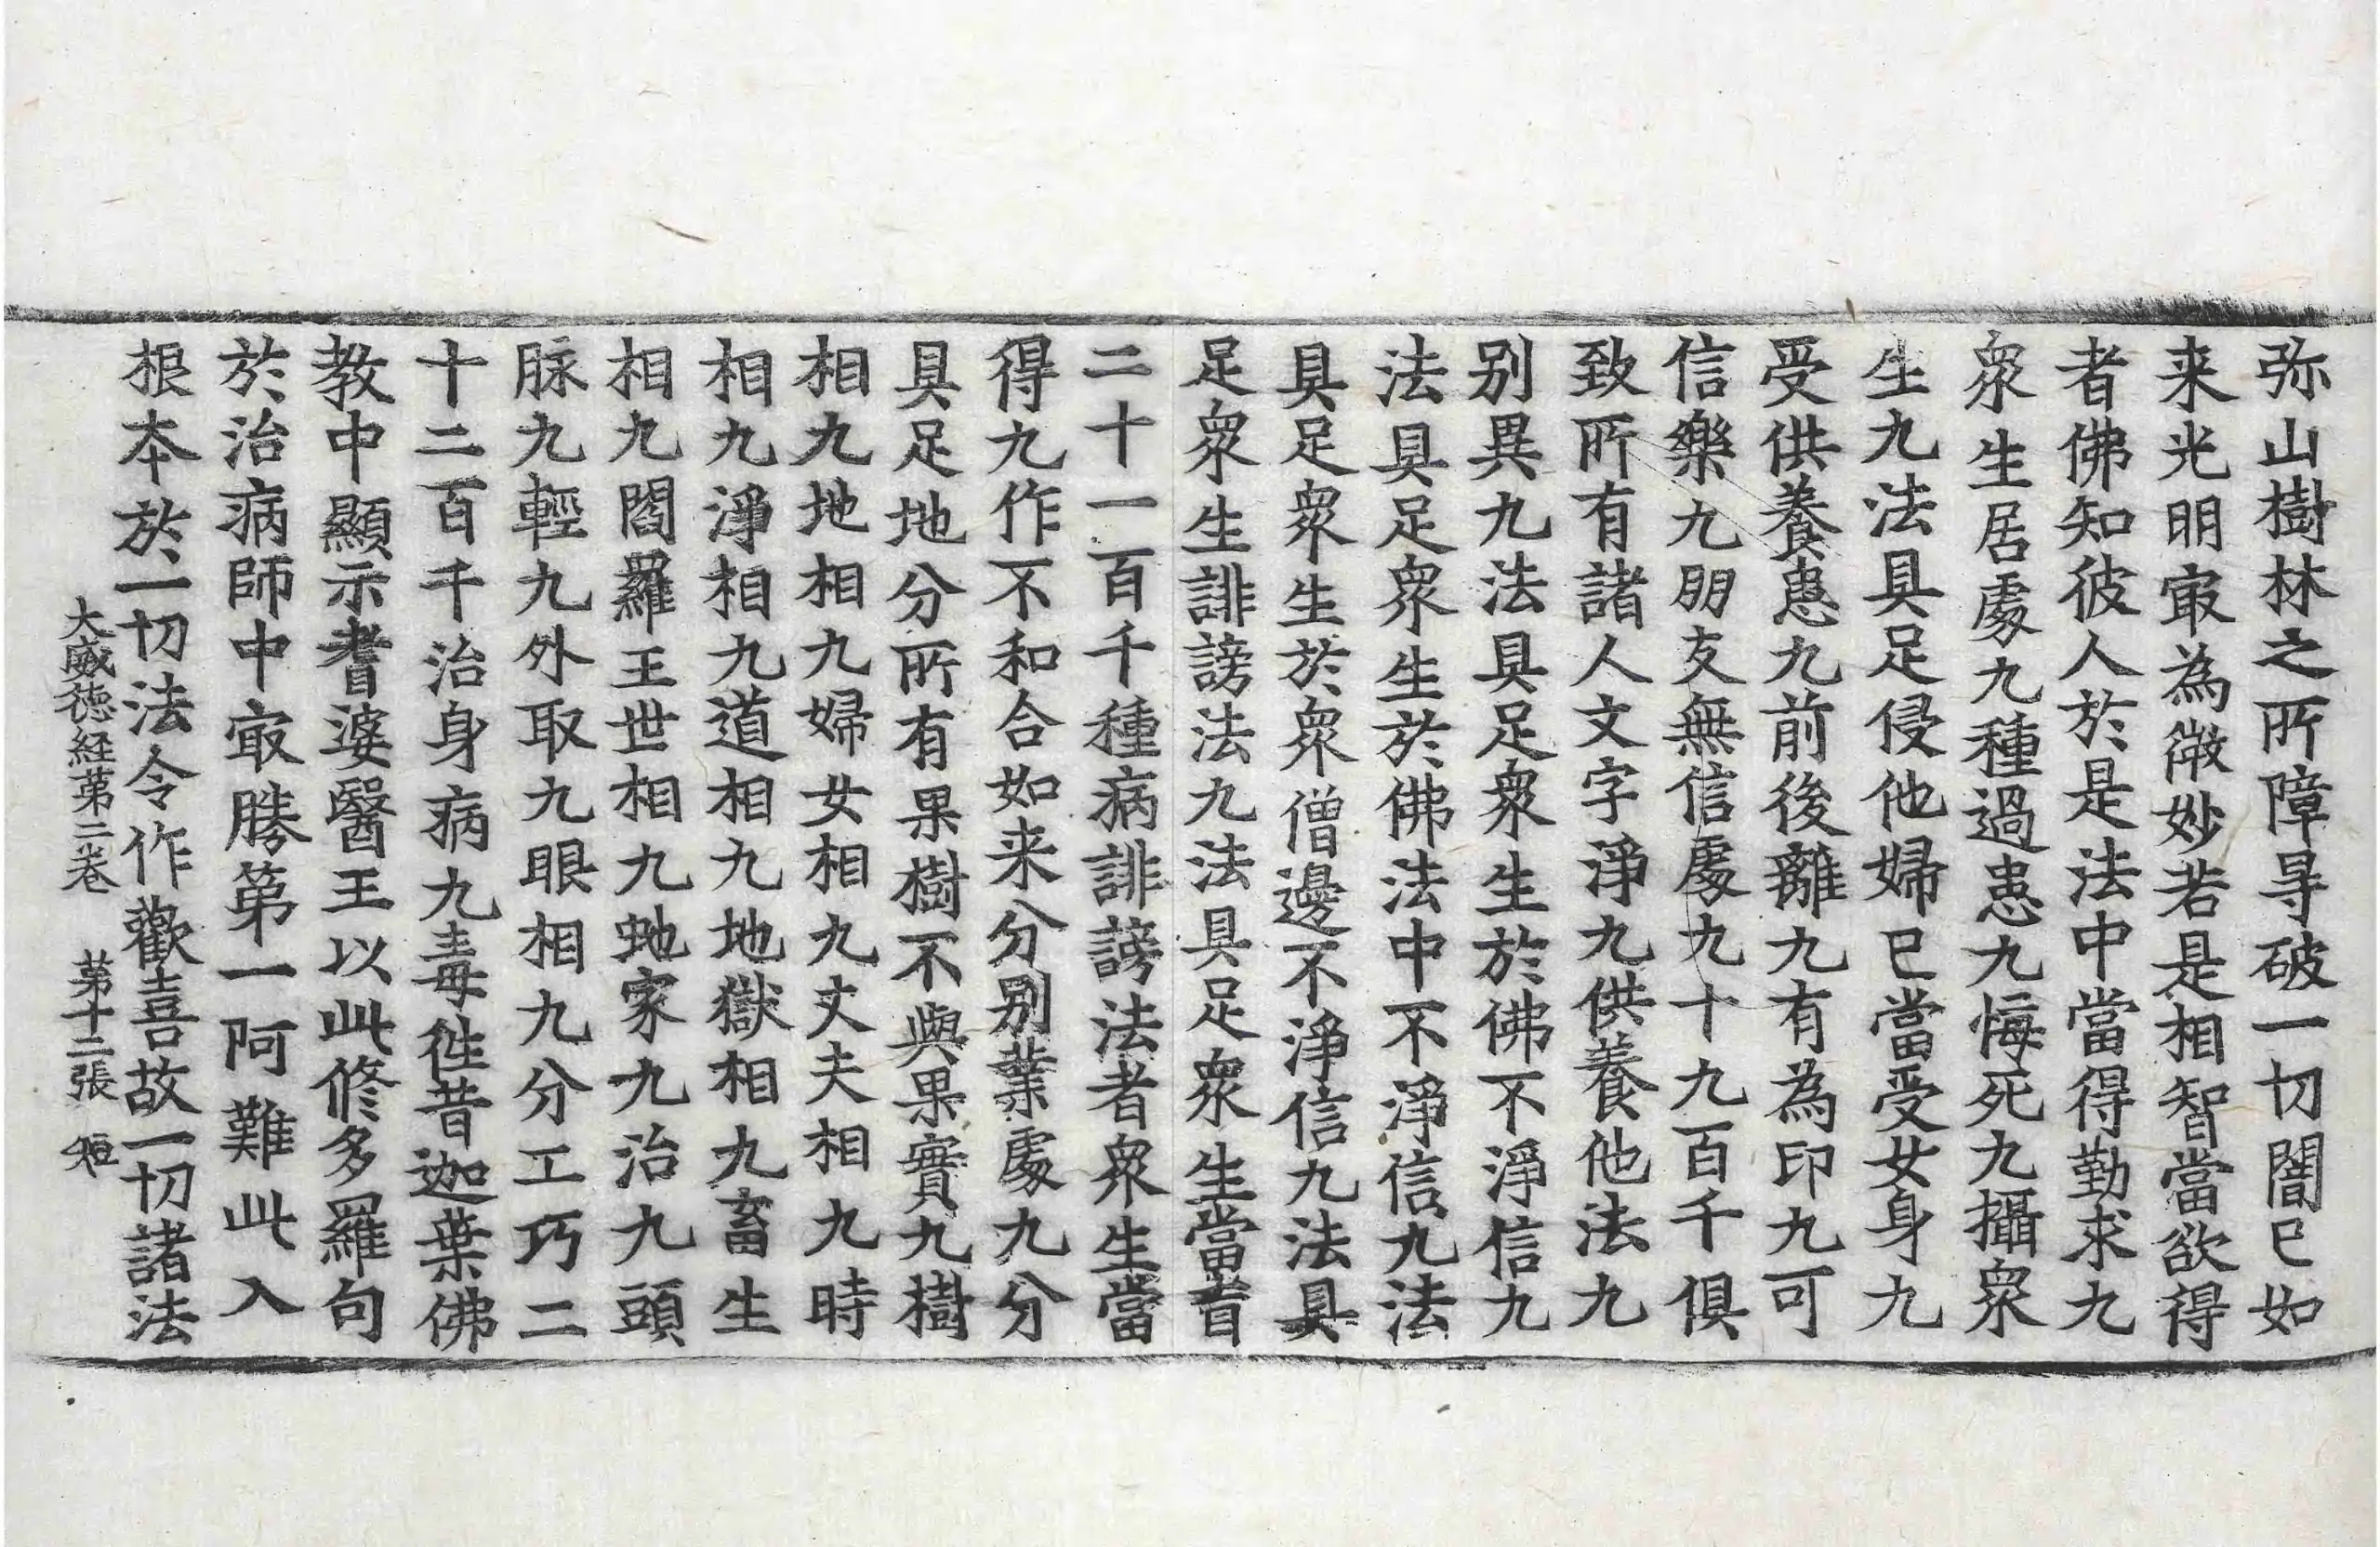 弥山樹林之所障㝵破一切闇已如
来光明㝡為微妙若是相智當欲得
者佛知彼人於是法中當得勤求九
衆生居處九種過患九悔死九攝衆
生九法具足侵他婦已當受女身九
受供養患九前後離九有為印九可
信樂九朋友無信處九十九百千俱
致所有諸人文字淨九供養他法九
别異九法具足衆生於佛不淨信九
法具足衆生於佛法中不淨信九法
具足衆生於衆僧邊不淨信九法具
足衆生誹謗法九法具足衆生當者
二十一百千種病誹謗法者衆生當
得九作不和合如来分別業處九分
具足地分所有果樹不與果實九樹
相九地相九婦女相九丈夫相九時
相九淨相九道相九地獄相九畜生
相九閻羅王世相九虵家九治九頭
脉九輕九外取九眼相九分工巧二
十二百千治身病九毒徃昔迦葉佛
教中顯示耆婆醫王以此修多羅句
於治病師中㝡勝第一阿難此入
根本於一切法令作歡喜故一切諸法
大威徳経苐二卷 苐十二張 短